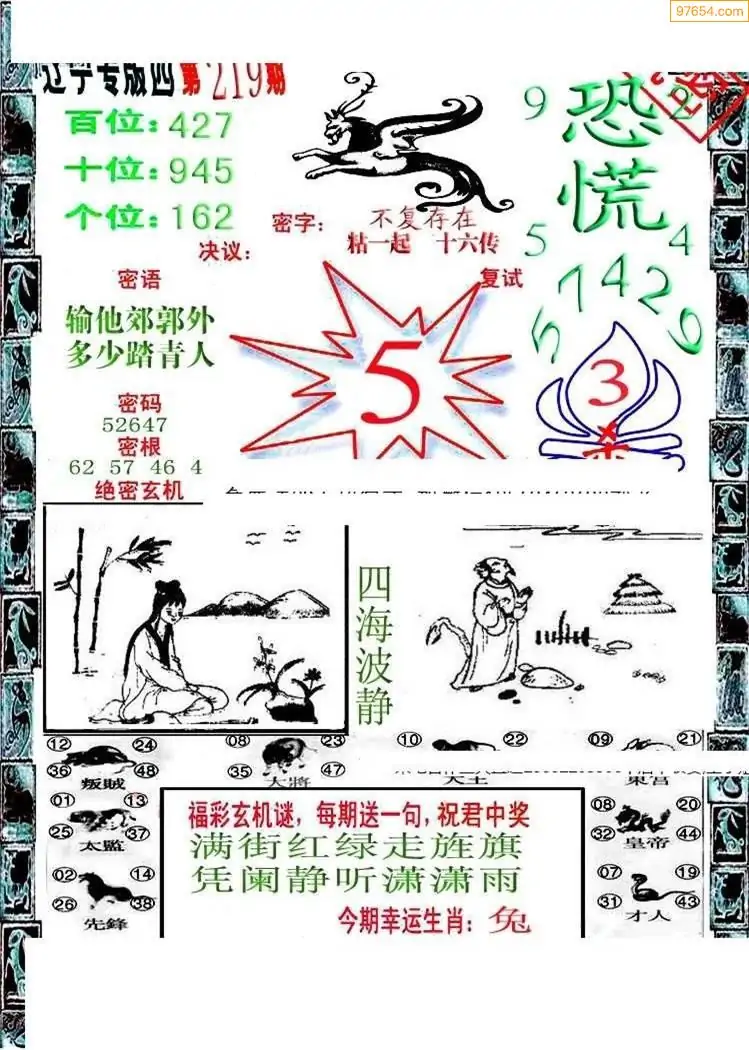 97654.com
辽宁专版四第219期
百位：427
十位：945
个位：162
密字：
不复存在
粘一起 十六传
决议：
复试
9
2
恐
慌
5
4
5
7
4
2
9
密语
输他郊郭外
多少踏青人
密码
52647
密根
62 57 46 4
绝密玄机
5
3
四海波静
12 24
36 48
叛贼
08 23
35 47
大將
10 22
09 21
01 13
25 37
太監
02 14
26 38
先鋒
08 20
32 44
皇帝
07 19
31 43
才人
福彩玄机谜，每期送一句，祝君中奖
满街红绿走旌旗
凭阑静听潇潇雨
今期幸运生肖：兔